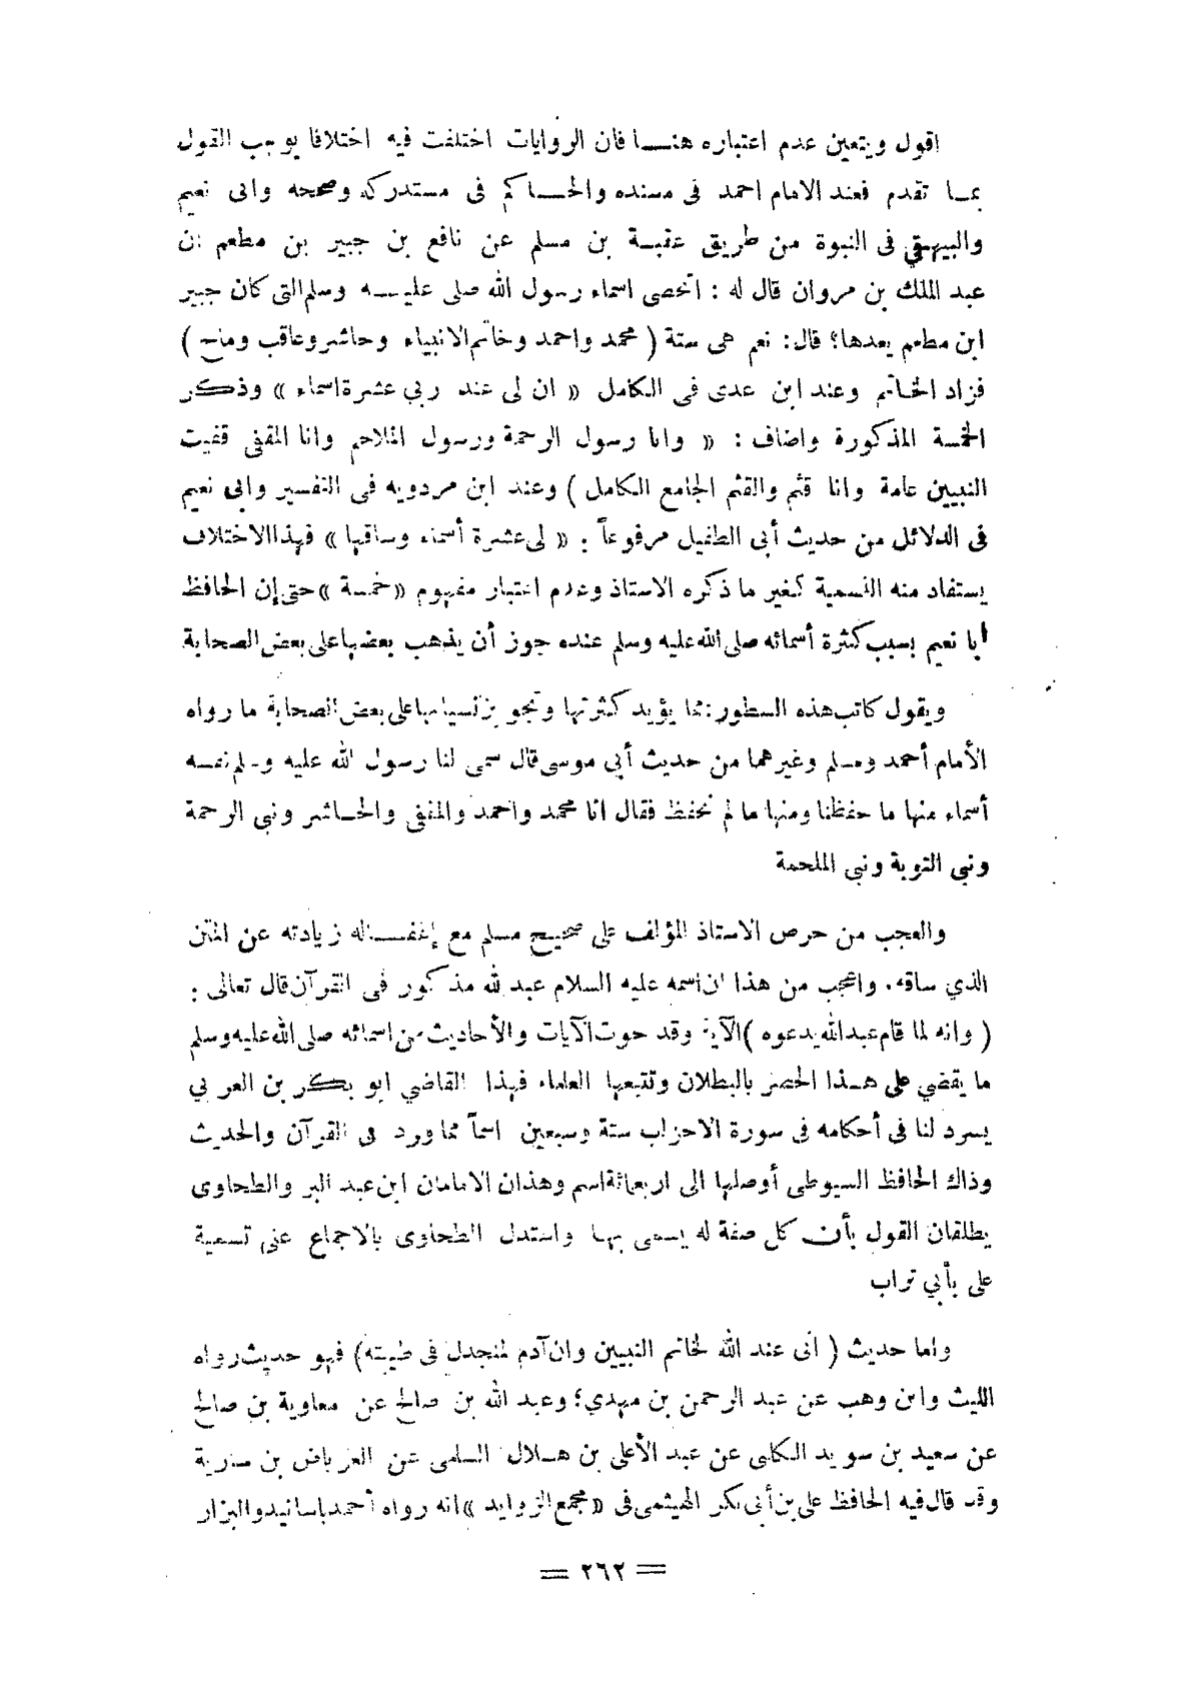 اقول ويتعين عدم اعتباره هنـــا فان الروايات اختلفت فيه اختلافا يوجب القول
بمـا تقدم فعند الامام احمد فى مسنده والحـــاكم فى مستدركه وصححه وابى نعيم
والبيهقي فى النبوة من طريق عتبـة بن مسلم عن نافع بن جبير بن مطعم ان
عبد الملك بن مروان قال له : اتحصى اسماء رسول الله صلى عليـــه وسلم التى كان جبير
ابن مطعم يعدها؟ قال: نعم هى ستة ( محمد واحمد وخاتم الانبياء وحاشر وعاقب وماح )
فزاد الخـاتم وعند ابن عدى فى الكامل « ان لى عند ربي عشرة اسماء » وذكر
الخمسة المذكورة واضاف : « وانا رسول الرحمة ورسول الملاحم وانا المقفى قفيت
النبيين عامة وانا قثم والقثم الجامع الكامل ) وعند ابن مردويه فى التفسير وابي نعيم
فى الدلائل من حديث أبى الطفيل مرفوعاً : « لى عشرة أسماء وساقها » فهذا الاختلاف
يستفاد منه التسمية بغير ما ذكره الاستاذ وعدم اعتبار مفهوم « خمسة » حتى إن الحافظ
أبا نعيم بسبب كثرة أسمائه صلى الله عليه وسلم عنده جوز أن يذهب بعضها على بعض الصحابة
ويقول كاتب هذه السطور: مما يؤيد كثرتها وتجويز نسيانها على بعض الصحابة ما رواه
الأمام أحمد ومسلم وغيرهما من حديث أبى موسى قال سمى لنا رسول الله عليه وسلم نفسـه
أسماء منها ما حفظنا ومنها ما لم نحفظ فقال انا محمد واحمد والمقفى والحـاشر ونبى الرحمة
ونبي التوبة ونبي الملحمة
والعجب من حرص الاستاذ المؤلف على صحيح مسلم مع إغفـــاله زيادته عن المتن
الذي ساقه. واعجب من هذا ان اسمه عليه السلام عبد لله مذكور فى القرآن قال تعالى :
( وانه لما قام عبد الله يدعوه ) الآية وقد حوت الآيات والأحاديث من اسمائه صلى الله عليه وسلم
ما يقضي على هـذا الحصر بالبطلان وتتبعها العلماء فهذا القاضي ابو بكر بن العربي
يسرد لنا فى أحكامه فى سورة الاحزاب ستة وسبعين اسماً مما ورد فى القرآن والحديث
وذاك الحافظ السيوطى أوصلها الى اربعمائة اسم وهذان الامامان ابن عبد البر والطحاوى
يطلقان القول بأن كل صفة له يسمى بهـا واستدل الطحاوى بالاجماع على تسمية
على بأبي تراب
واما حديث ( انى عند الله لخاتم النبيين وان آدم لمنجدل فى طينته) فهو حديث رواه
الليث وابن وهب عن عبد الرحمن بن مهدي؛ وعبد الله بن صالح عن معاوية بن صالح
عن سعيد بن سويد الكلبى عن عبد الأعلى بن هـلال السلمى عن العرباض بن سارية
وقد قال فيه الحافظ على بن أبى بكر الهيثمى فى « مجمع الزوايد » انه رواه أحمد باسانيد والبزار
== ٢٦٢ ==